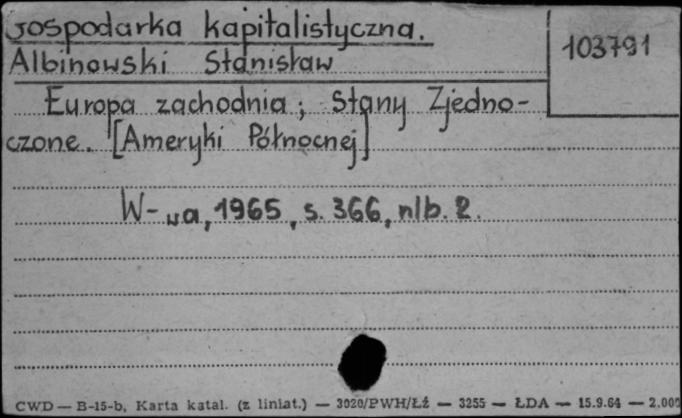 Gospodarka kapitalistyczna.
103791
Albinowski Stanisław
Europa zachodnia; Stany Zjedno-
czone. [Ameryki Północnej]
W-wa, 1965, s. 366, nlb. 2.
CWD — B-15-b, Karta katal. (z liniat.) — 3020/PWH/Łź — 3255 — ŁDA — 15.9.64 — 2.000